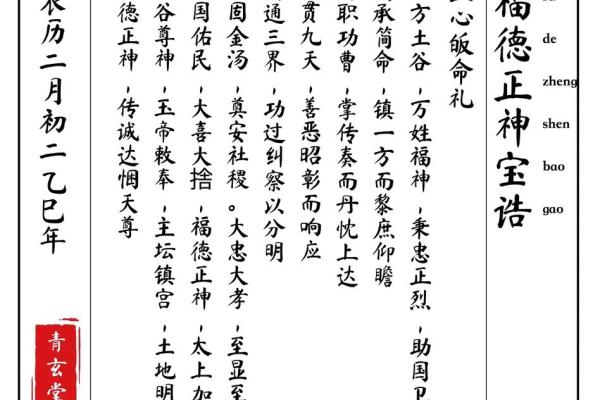 de
zheng
shen
bao
gao
福德正神宝诰
心皈命礼
方土谷，万姓福神，秉忠正烈，助国卫
承简命，镇一方而黎庶仰瞻
职功曹，掌传奏而丹忱上达
贯九天，善恶昭彰而响应
通三界，功过纠察以分明
固金汤，奠安社稷。大忠大孝，至显至
国佑民，大喜大捨，福德正神，太上加
谷尊神，玉帝敕奉，主坛镇宫，土地明
德正神，传诚达悃天尊
农历二月初二乙巳年
青玄堂